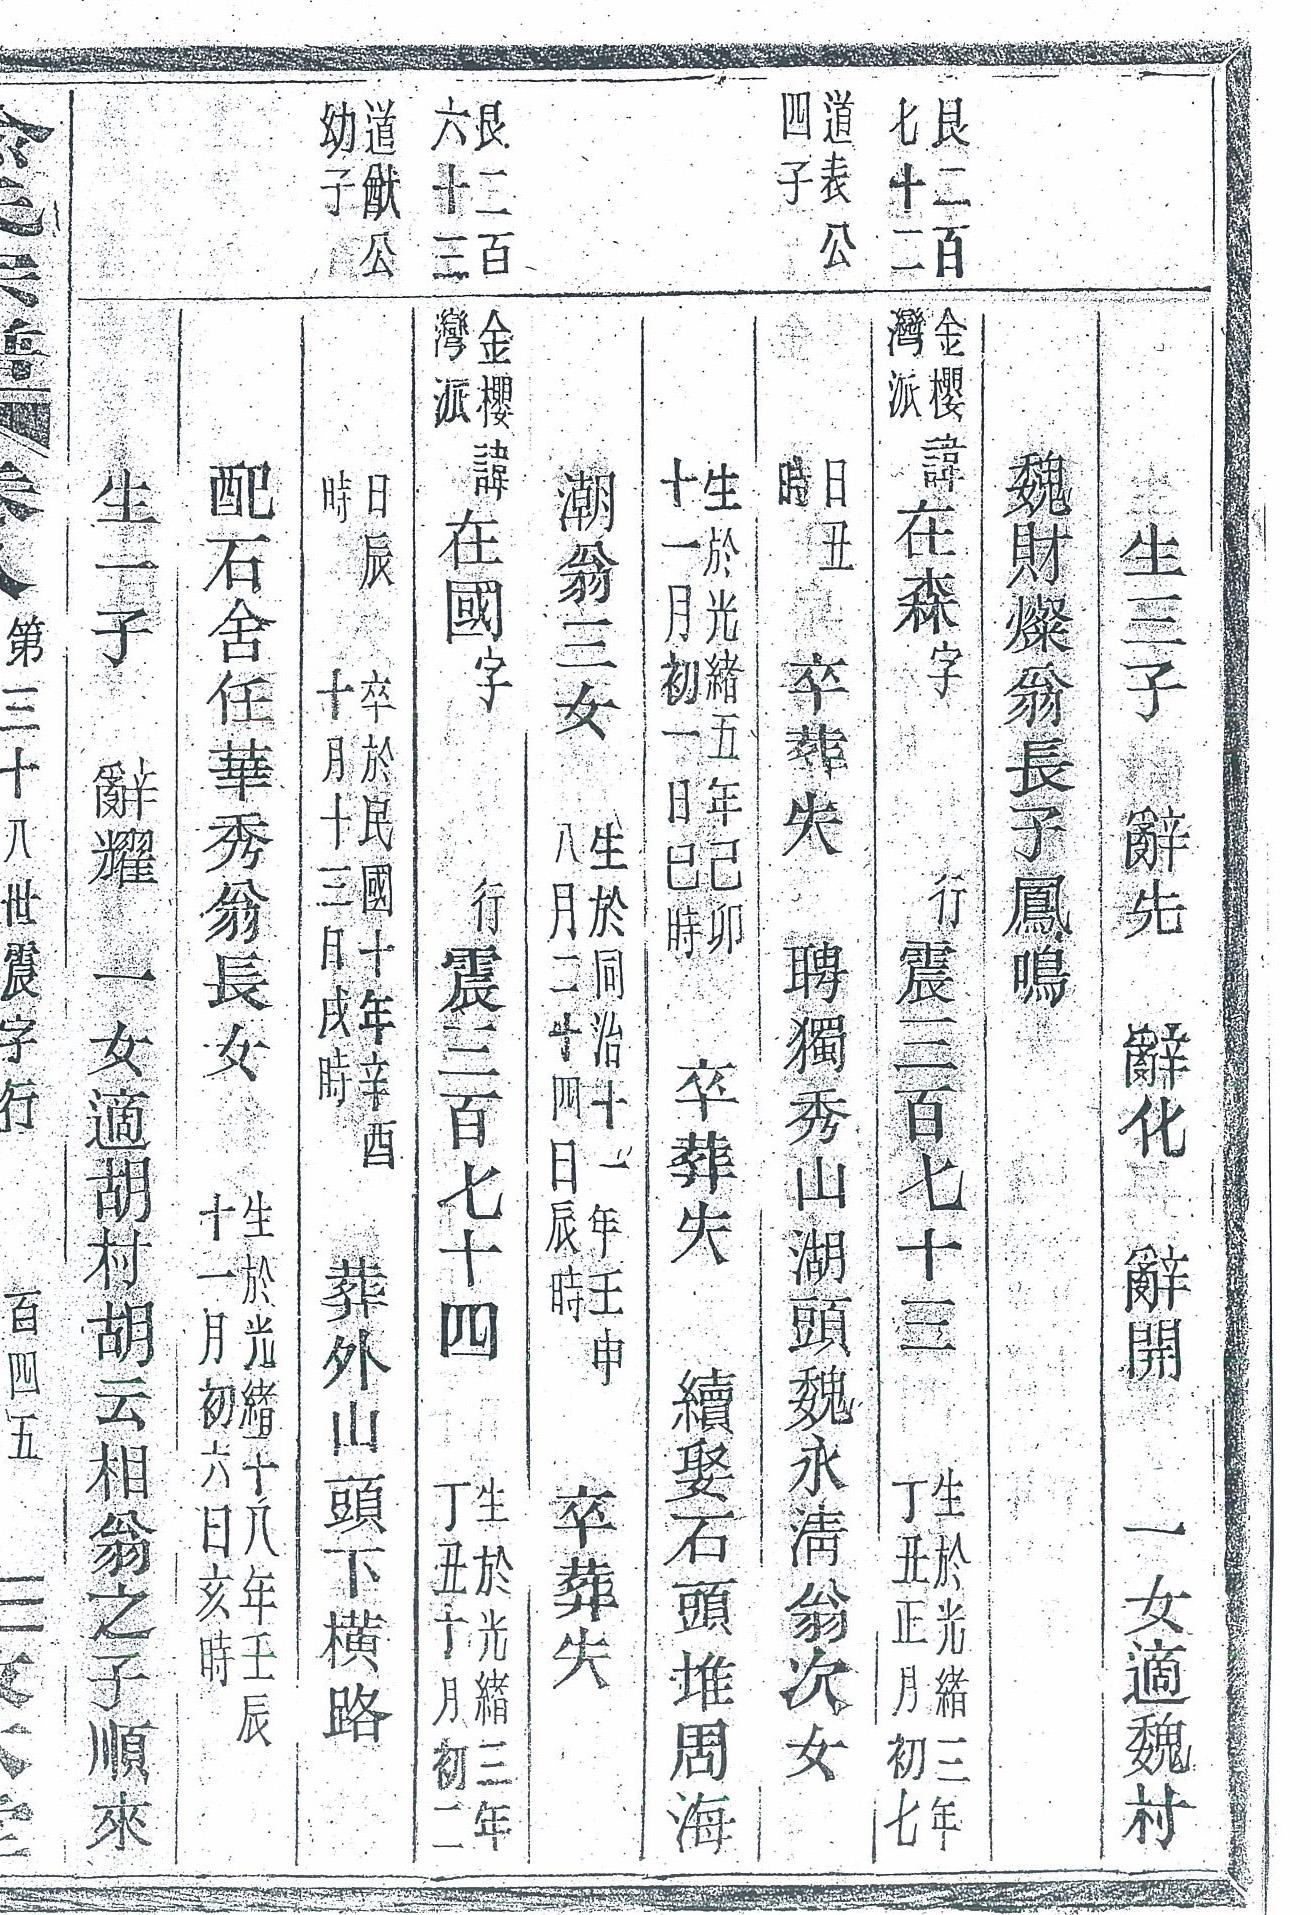 生三子 辭先 辭化 辭開 一女適魏村
魏財燦翁長子鳳鳴
艮二百
七十二
金櫻
灣派
諱在森字 行震三百七十三
生於光緒三年
丁丑正月初七
道表公
四子
日丑
時
卒葬失 聘獨秀山湖頭魏永淸翁次女
生於光緒五年己卯
十一月初一日巳時
卒葬失 續娶石頭堆周海
潮翁三女
生於同治十一年壬申
八月二十四日辰時
卒葬失
艮二百
六十三
金櫻
灣派
諱在國字 行震三百七十四
生於光緒三年
丁丑十月初二
道猷公
幼子
日辰
時
卒於民國十年辛酉
十月十三日戌時
葬外山頭下橫路
配石舍任華秀翁長女
生於光緒十八年壬辰
十一月初六日亥時
生一子 辭耀 一女適胡村胡云相翁之子順來
第三十八世震字行 百四五